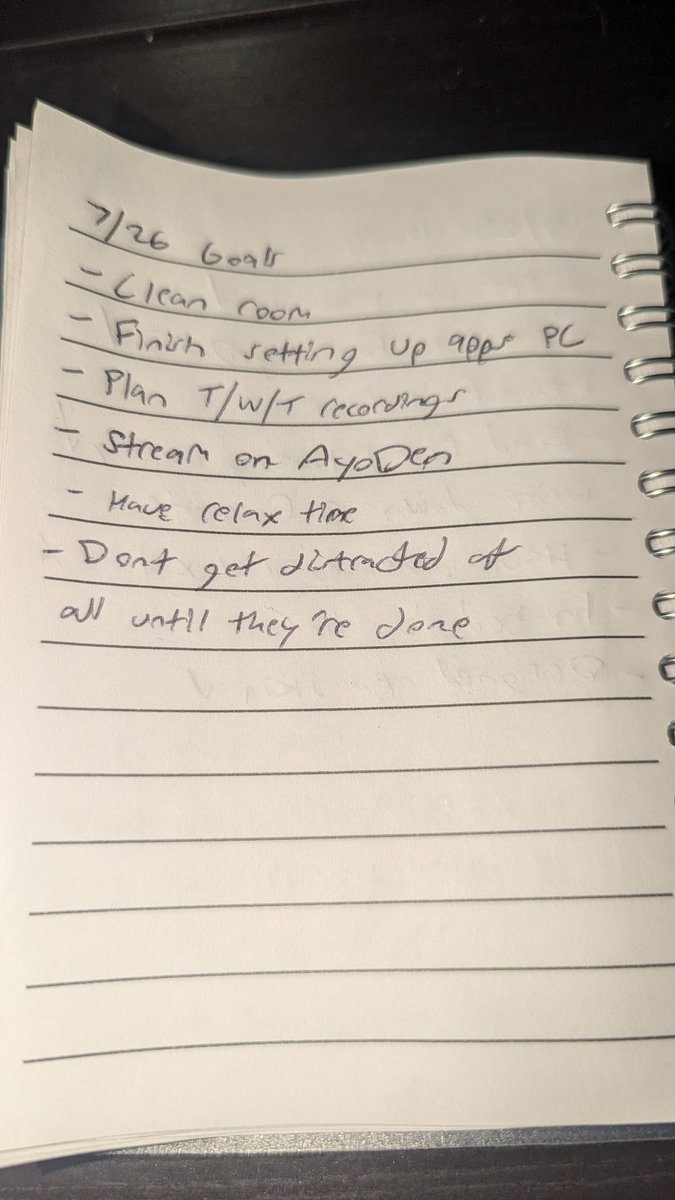 7/26 Goals
- Clean room
- Finish setting up apps PC
- Plan T/W/T recordings
- Stream on AyoDen
- Have relax time
- Dont get distracted at
all until they're done